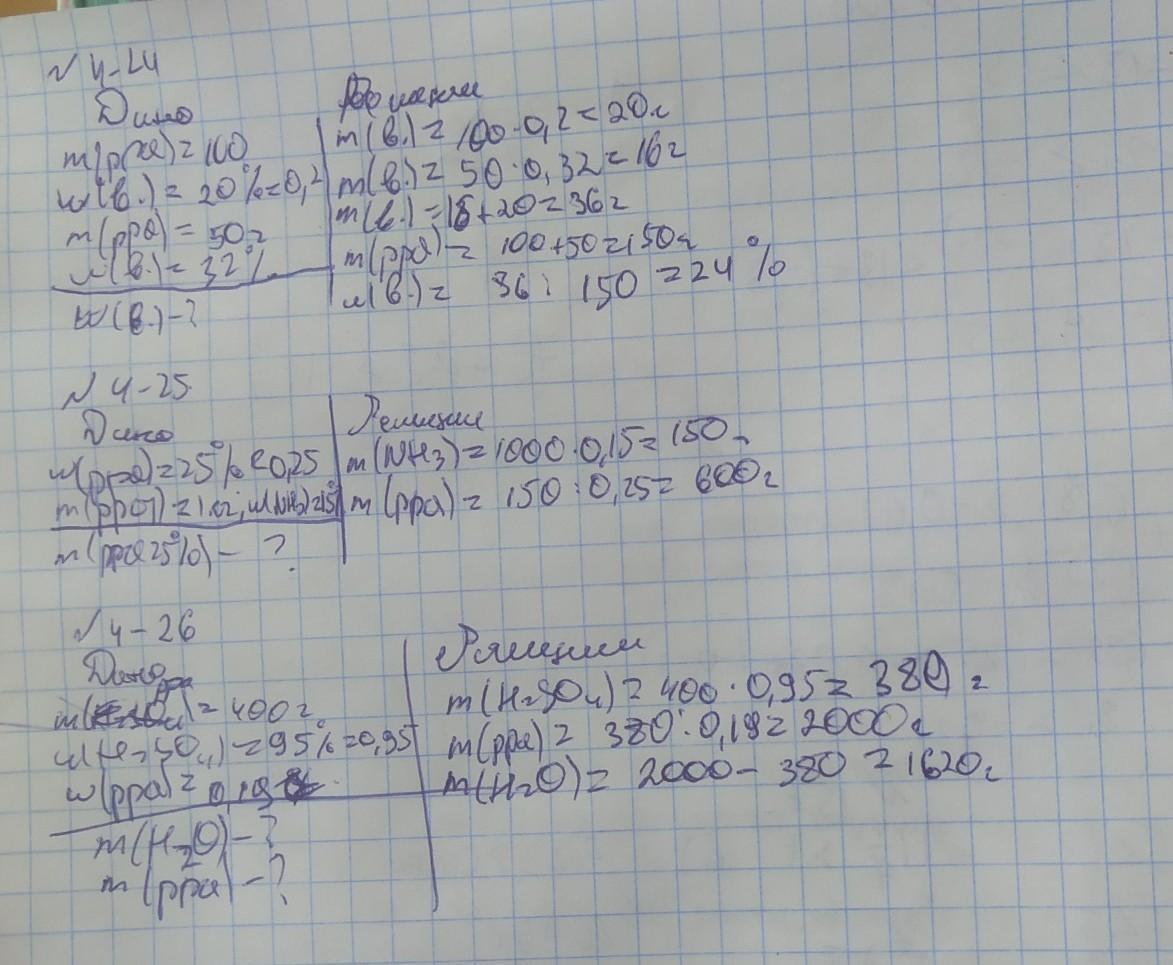 № 4-24
Дано
m(р-ра) = 100
w(в.) = 20% = 0,2
m(рра) = 50г
w(в.) = 32%
w(в.) - ?
Решение
m(в.) = 100 · 0,2 = 20г
m(в.) = 50 · 0,32 = 16г
m(в.) = 16 + 20 = 36г
m(рра) = 100 + 50 = 150г
w(в.) = 36 : 150 = 24%
№ 4-25
Дано
w(рра) = 25% = 0,25
m(рра) = 1кг; w(NH3) = 15%
m(рра 25%) - ?
Решение
m(NH3) = 1000 · 0,15 = 150г
m(рра) = 150 : 0,25 = 600г
№ 4-26
Дано
m( рра) = 400г
w(H2SO4) = 95% = 0,95
w(рра) = 0,19
m(H2O) - ?
m(рра) - ?
Решение
m(H2SO4) = 400 · 0,95 = 380 г
m(рра) = 380 : 0,19 = 2000г
m(H2O) = 2000 - 380 = 1620г